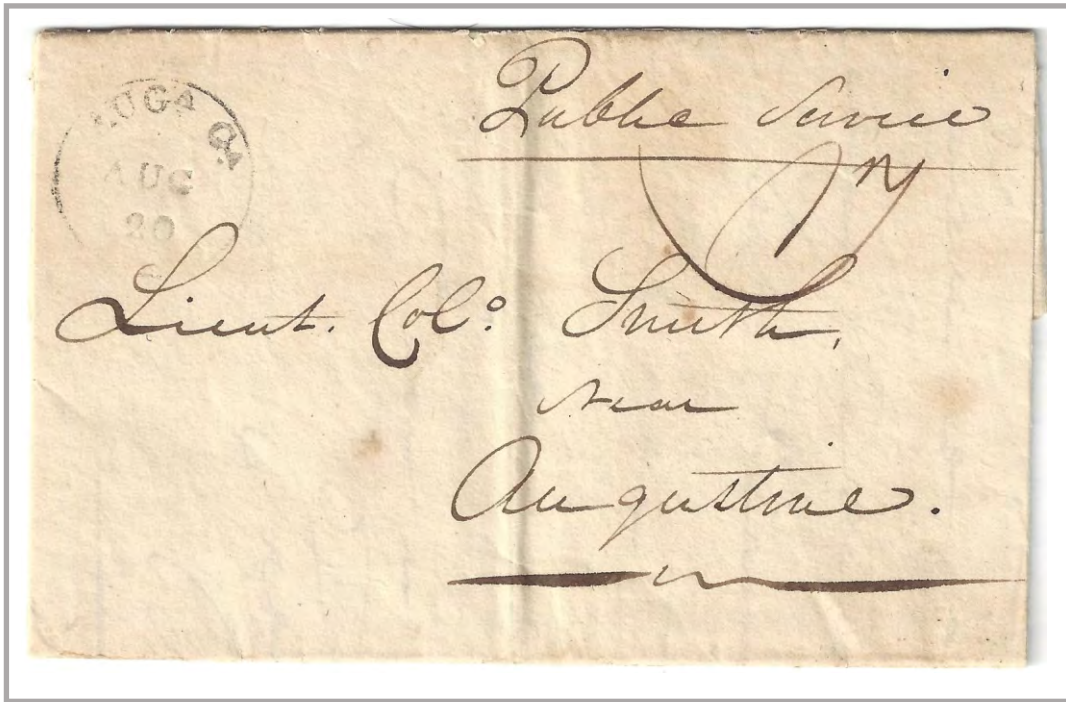 AUGA GA
AUG
20
Public Service
Lieut. Colº. Smith,
Near
Augustine.